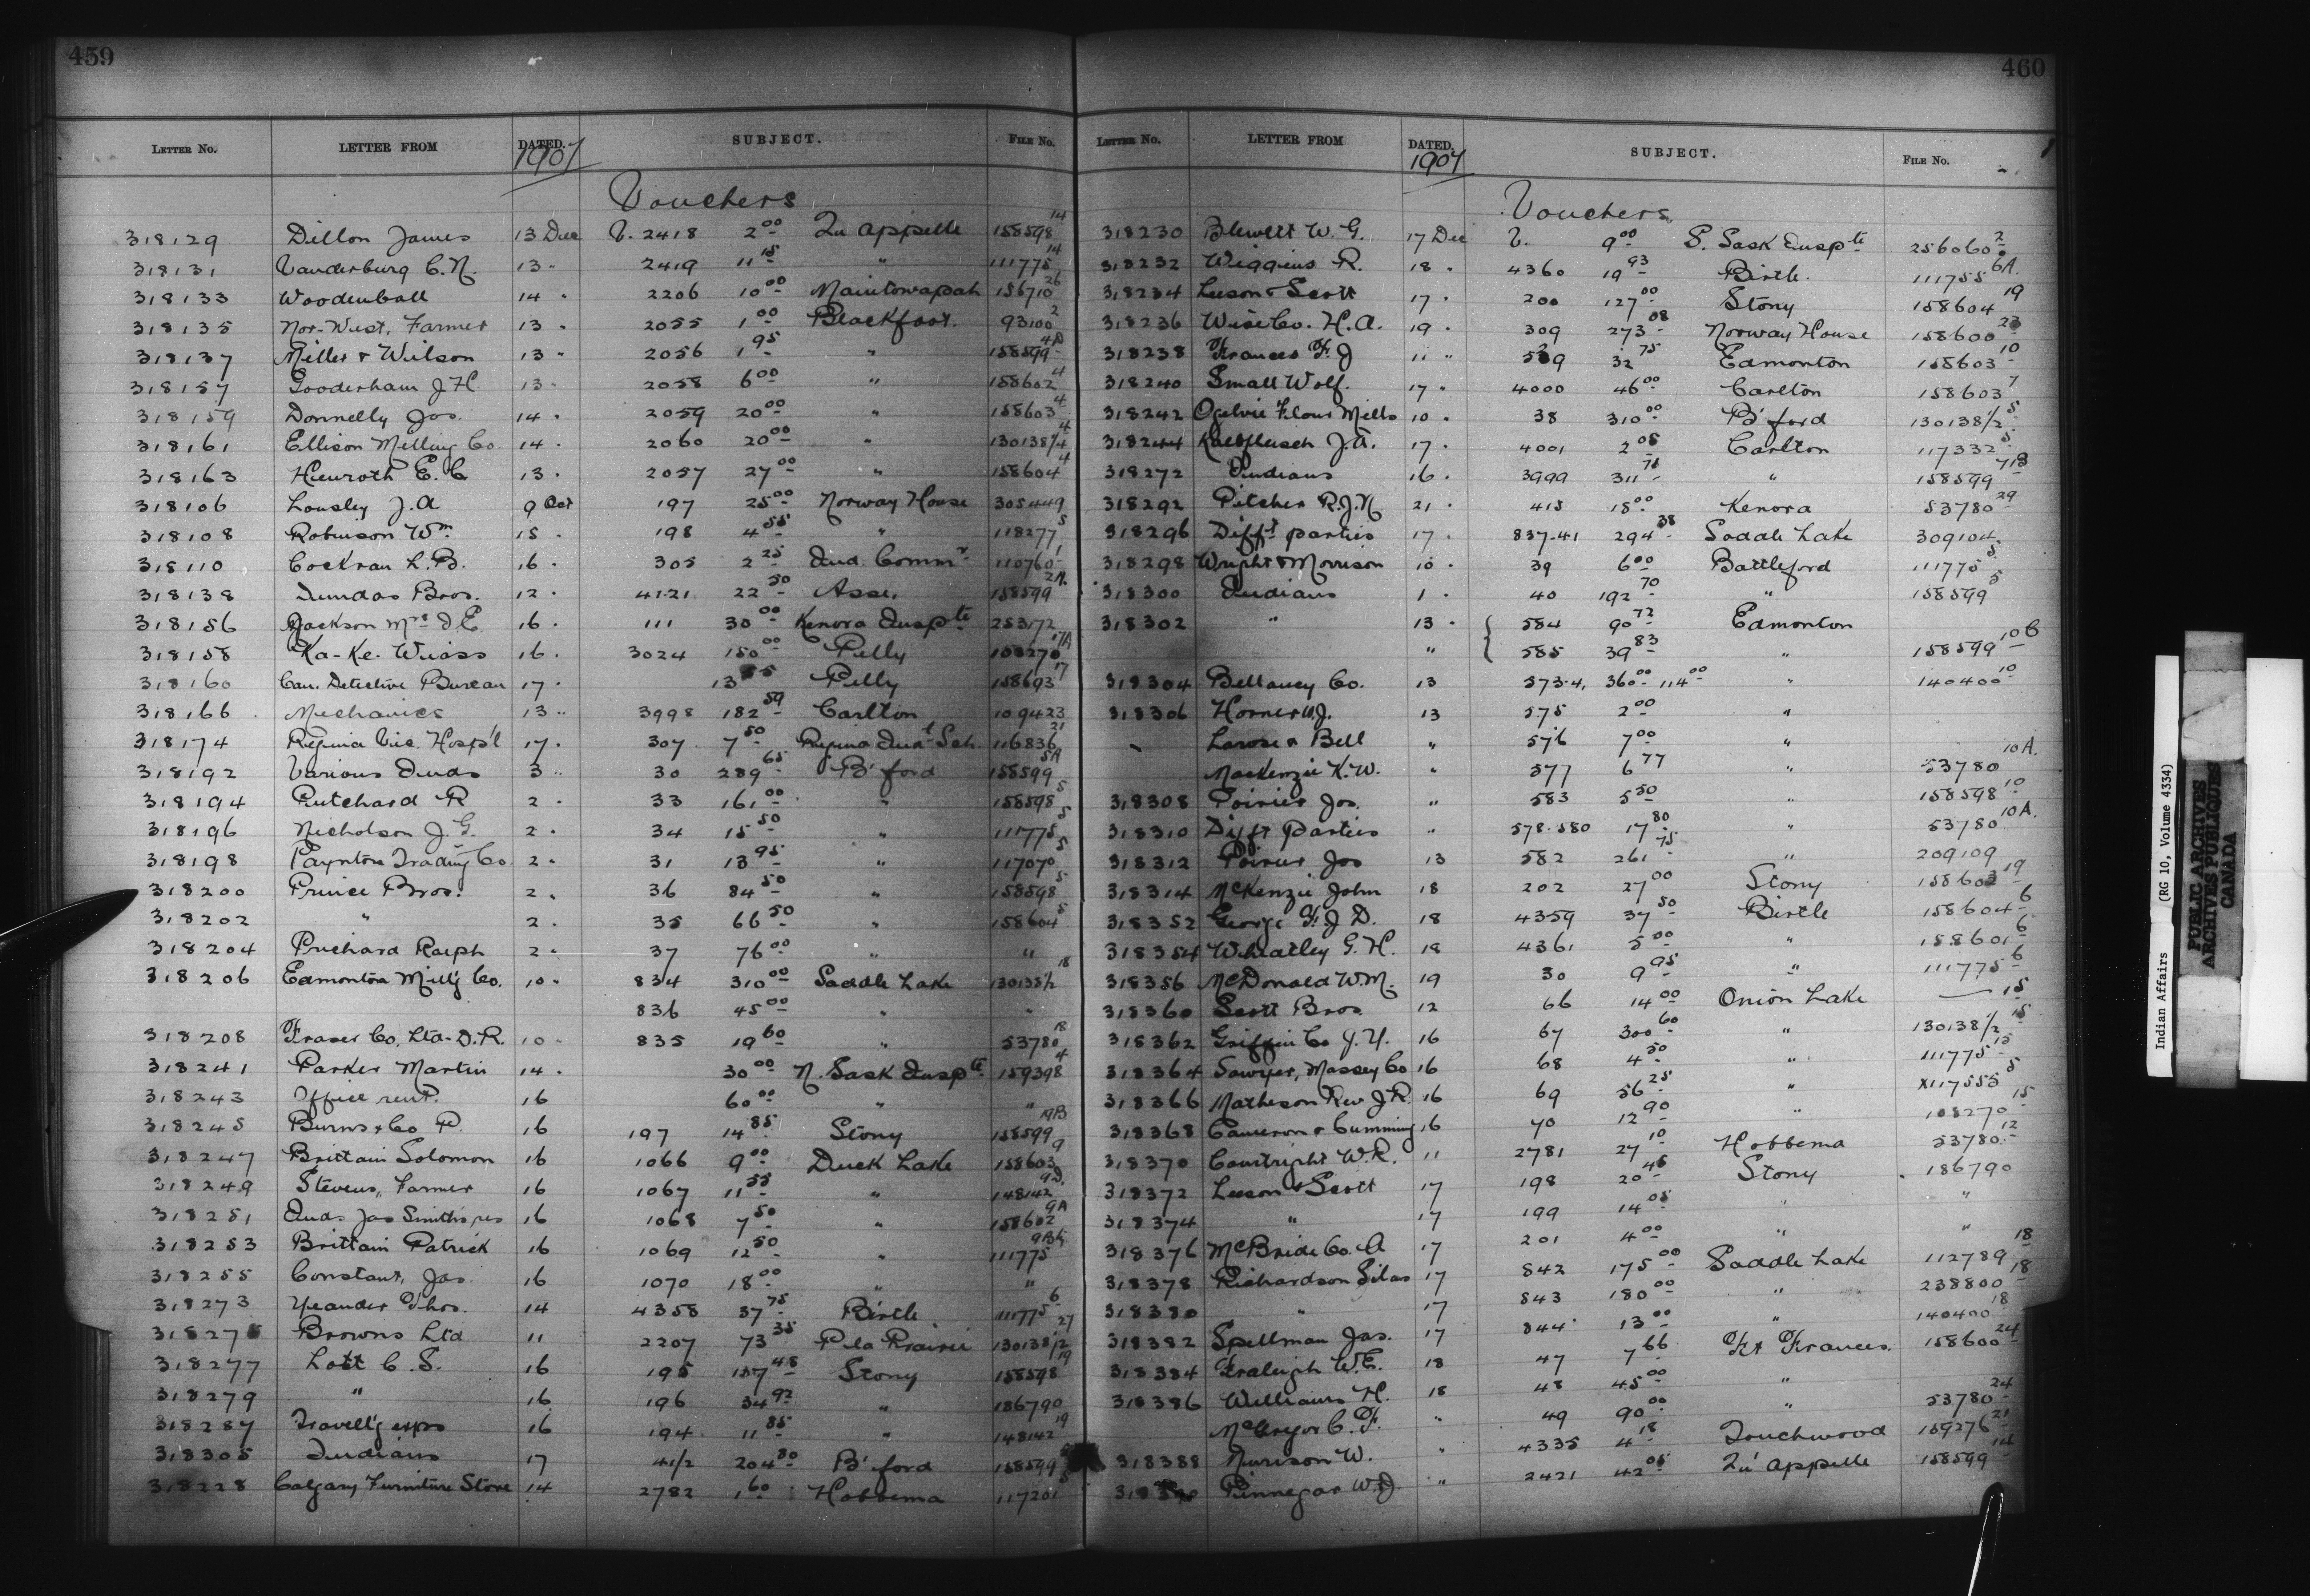 459
LETTER NO. LETTER FROM DATED. SUBJECT. FILE NO.
1907
Vouchers
318129 Dillon James 13 Dec V. 2418 2 00 Qu'appelle 158598 14
318131 Vanderburg C.N. 13 " 2419 11 15 " 111775 14
318133 Woodenball 14 " 2206 10 00 Manitowapah 156710 26
318135 Nor-West, Farmer 13 " 2055 1 00 Blackfoot. 93100 2
318137 Miller & Wilson 13 " 2056 1 95 " 158599 4D
318157 Gooderham J.H. 13 " 2058 6 00 " 158602 4
318159 Donnelly Jos. 14 " 2059 20 00 " 158603 4
318161 Ellison Milling Co. 14 " 2060 20 00 " 130138 1/4 4
318163 E. C. 13 " 2057 27 00 " 158604 4
318106 Lousley J.A 9 Oct 197 25 00 Norway House 305449
318108 Robinson Wm 15 " 198 4 55 " 118277 5
318110 Cockran L.B. 16 " 305 2 25 Ind. Commr 110760 1
318138 Dundas Bros. 12 " 4121 22 50 Asse. 158599 2A
318156 Jackson Mrs D.E. 16 " 111 30 00 Kenora Inspte 253172
318158 Ka-Ke-Wiass 16 " 3024 150 00 Pelly 100270 17A
318160 Can. Detective Bureau 17 " 13 55 Pelly 158693 17
318166 Mechanics 13 " 3998 182 59 Carlton 109423
318174 Regina Vic. Hosp'l 17 " 307 7 50 Regina Indt Sch. 116836 21
318192 Various Inds 3 " 30 289 65 B'ford 158599 5A
318194 Pritchard R 2 " 33 161 00 " 158598 5
318196 Nicholson J.G. 2 " 34 15 50 " 111775 5
318198 Paynton Trading Co. 2 " 31 13 95 " 117070 5
318200 Prince Bros. 2 " 36 84 50 " 158598 5
318202 " 2 " 35 66 50 " 158604 5
318204 Prichard Ralph 2 " 37 76 00 " "
318206 Edmonton Mill'g Co. 10 " 834 310 00 Saddle Lake 130138 1/2 18
836 45 00 " "
318208 Fraser Co. Ltd. D.R. 10 " 835 19 60 " 53780 18
318241 Parker Martin 14 " 30 00 N. Sask Inspte 159398 4
318243 Office rent. 16 60 00 " "
318245 Burns & Co P. 16 197 14 85 Stony 158599 19B
318247 Brittain Solomon 16 1066 9 00 Duck Lake 158603 9
318249 Stevens, Farmer 16 1067 11 55 " 148142 9D.
318251 Inds Jas Smith's res 16 1068 7 50 " 158602 9A
318253 Brittain Patrick 16 1069 12 50 " 111775
318255 Constant, Jas. 16 1070 18 00 " "
318273 Yeander Thos. 14 4358 37 75 Birtle 111775 6
318275 Browns Ltd 11 2207 73 35 P la Prairie 130138 1/2 27
318277 Lott C.S. 16 195 157 48 Stony 158598 19
318279 " 16 196 34 92 " 186790
318287 Travell'g exps 16 194 11 85 " 148142 19
318305 Indians 17 41/2 204 80 B'ford 158599
318228 Calgary Furniture Store 14 2782 1 60 Hobbema 117201
460
LETTER NO. LETTER FROM DATED. SUBJECT. FILE NO.
1907
Vouchers
318230 Blewett W.G. 17 Dec V. 9 00 S. Sask Inspte 256060 2
318232 Wiggins R. 18 " 4360 19 93 Birtle. 111755 6A.
318234 Leeson & Scott 17 " 200 127 00 Stony 158604 19
318236 Wise Co. H.A. 19 " 309 273 08 Norway House 158600 23
318238 Frances F.J 11 " 32 75 Edmonton 158603 10
318240 Small Wolf. 17 " 4000 46 00 Carlton 158603 7
318242 Ogilvie Flour Mills 10 " 38 310 00 B'ford 130138 1/2 5
318244 Kalbfleisch J.A. 17 " 4001 2 05 Carlton 117332 5
318272 Indians 16 " 3999 311 71 " 158599 7B
318292 Pitcher R.J.N 21 " 415 15 00 Kenora 53780 29
318296 Difft parties 17 " 837-41 294 38 Saddle Lake 309104
318298 Wright & Morrison 10 " 39 6 00 Battleford 111775 5
318300 Indians 1 " 40 192 70 " 158599 5
318302 " 13 " 584 90 72 Edmonton
" 585 39 83 " 158599 10C
318304 Bellamy Co. 13 573-4, 360 00 114 00 " 140400 10
318306 Horner W.J. 13 575 2 00 "
Larose & Bell " 576 7 00 "
MacKenzie K.W. " 577 6 77 " 53780 10A.
318308 Poirier Jos. " 583 5 50 " 158598 10
318310 Difft Parties " 578-580 17 80 " 53780 10A.
318312 Poirier Jos 13 582 261 75 " 209109
318314 McKenzie John 18 202 27 00 Stony 158603 19
318352 George F.J.D. 18 4359 37 50 Birtle 158604 6
318354 Wheatley G.H. 18 4361 5 00 " 158601 6
318356 McDonald W.M. 19 30 9 95 " 111775 6
318360 Scott Bros 12 66 14 00 Onion Lake — 15
318362 Griffin Co J.Y. 16 67 300 60 " 130138 1/2 15
318364 Sawyer, Massey Co 16 68 4 50 " 111775 15
318366 Matheson Rev J.R. 16 69 56 25 " X117553 5
318368 Cameron & Cumming 16 70 12 90 " 108270 15
318370 Courtright W.R. 11 2781 27 10 Hobbema 53780 12
318372 Leeson & Scott 17 198 20 45 Stony 186790
318374 " 17 199 14 05 " "
318376 McBride Co. A 17 201 4 00 " "
318378 Richardson Silas 17 842 175 00 Saddle Lake 112789 18
318380 " 17 843 180 00 " 238800 18
318382 Spellman Jas. 17 844 13 00 " 140400 18
318384 Fraleigh W.E. 18 47 7 66 Ft Frances. 158600 24
318386 Williams H. 18 48 45 00 "
McGregor C.F. " 49 90 00 " 53780 24
318388 Nurison W. " 4335 4 18 Touchwood 159276 21
Pinnegar W.J. " 2421 42 05 Qu'appelle 158599 14
Indian Affairs (RG 10, Volume 4334)
PUBLIC ARCHIVES
ARCHIVES PUBLIQUES
CANADA